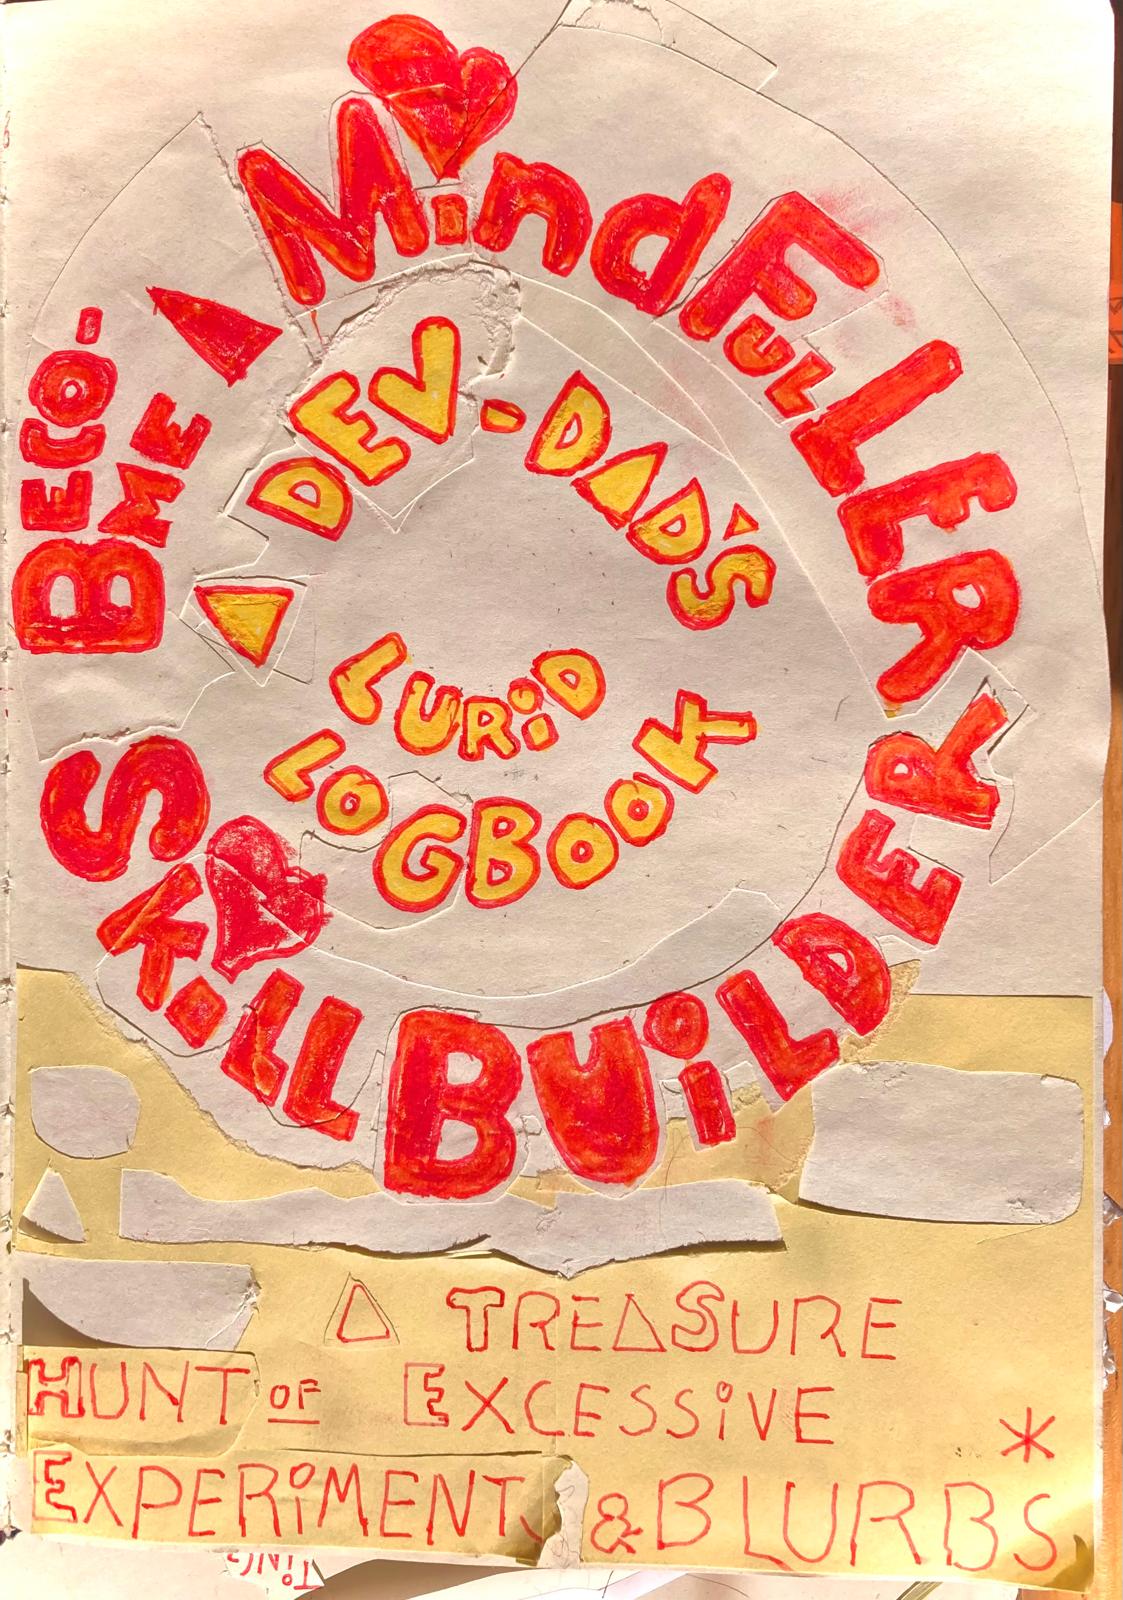 BECO-
ME A MindFuLLER
SKiLLBUiLDER
A DEV-DAD'S
LURiD
LOGBOOK
A TREASURE
HUNT OF EXCESSiVE *
EXPERiMENTS & BLURBS